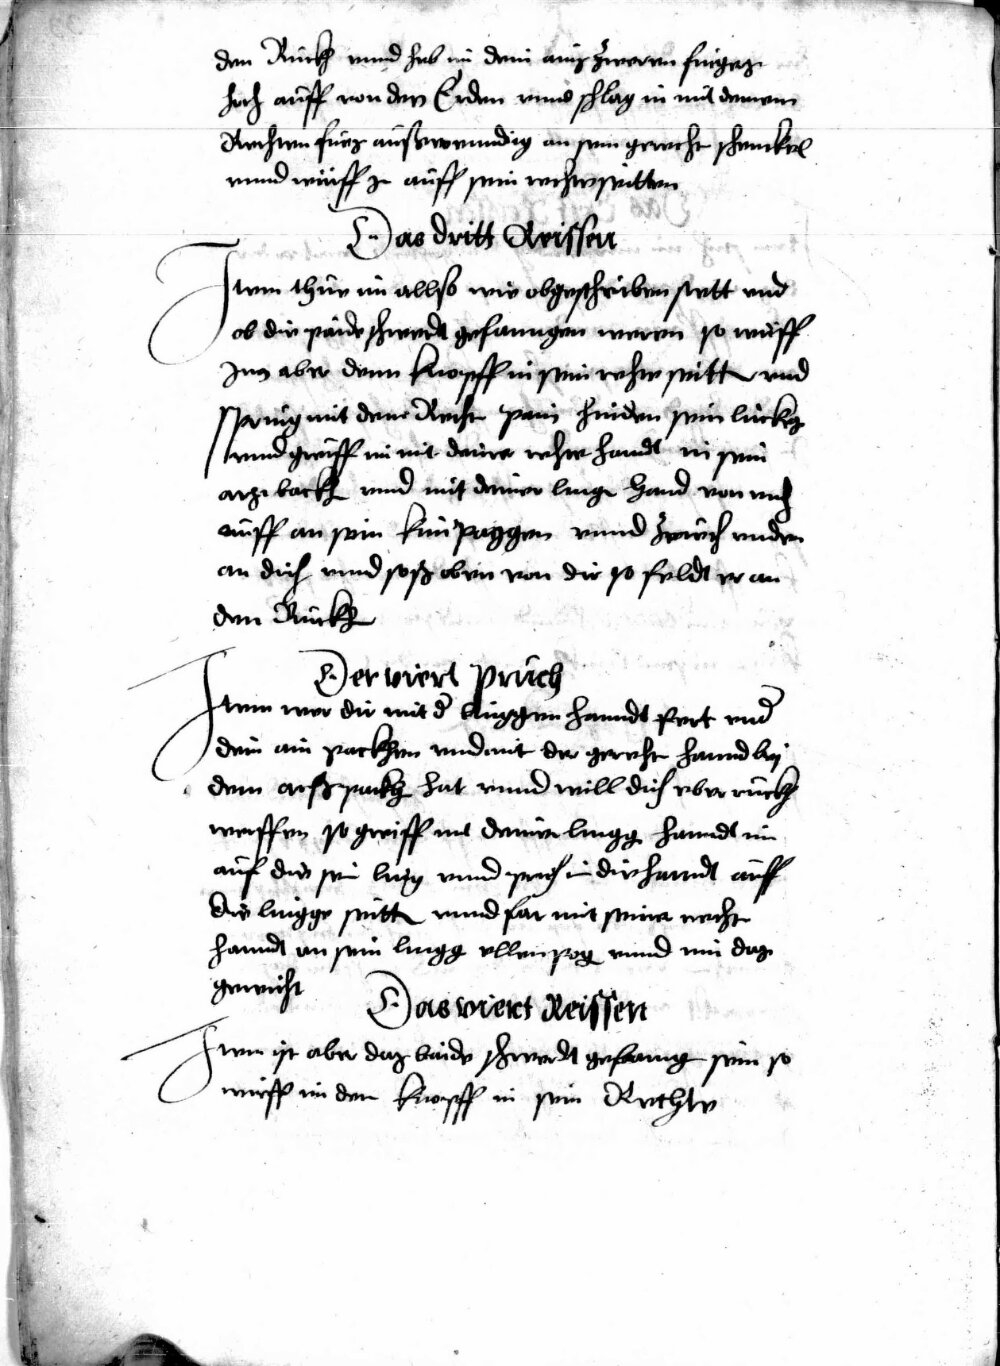 den Rückh vnnd heb in dein ainz zweren finger
hoch auff von der Erden vnnd schlag in mit deinem
Rechten fuez außwenndig an sein gerecht schenckel
vnnd wirff in auff sein rechte seitten
Das dritt Reissen
Item thue im allso wie obgeschriben stett vnd
ob die paide schwerdt gefanngen weren so wirff
Im aber denn knopff in sein rechte seitt vnd
spring mit dem Recht pain hinden sein lincks
vnnd greiff im mit deiner rechte handt in sein
arz backh vnnd mit deiner linge hand von
auff an sein kinpaggen vnnd zeuch vnden
an dich vnnd stoß oben von dir so feldt er an
den Rückh
Der viert pruch
Item wer dir mit der linggen hanndt fert vnder
dein ain packhen vnd mit der gerecht hannd bei
dem arßpackh hat vnnd will dich vber rückh
werffen so greiff mit deiner lingg hanndt im
auf die sein lingg vnnd in die hanndt auff
die lingge seitt vnnd far mit deiner recht
hanndt an sein lingg ellenpog vnnd nim daz
gewicht
Das viert Reissen
Item ist aber daz baide schwerdt gefanng sein so
wirff im den knopff in sein Rechte